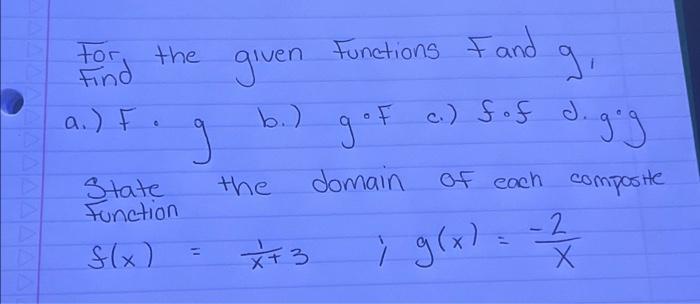 For, the given Functions F and g,
Find
a.) F ∘ g b.) g∘F c.) f∘f d. g∘g
State the domain of each composite
function
f(x) = 1/x+3 ; g(x) = -2/X